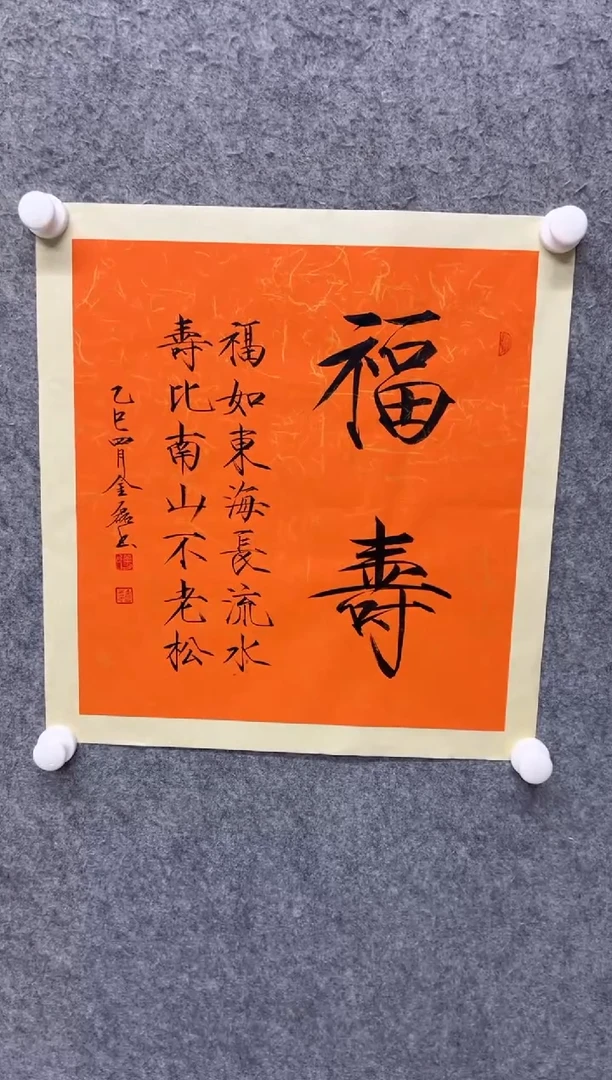 福壽
福如東海長流水
壽比南山不老松
乙巳四月金磊书